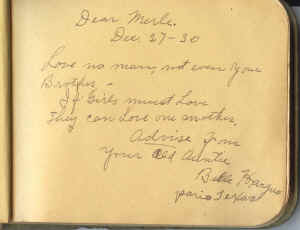 Dear Merle.
Dec 27-30
Love no man, not even your
Brother -
If Girls must Love
They can Love one mother,
Advise from
your Old Auntie
Belle
paris Texas